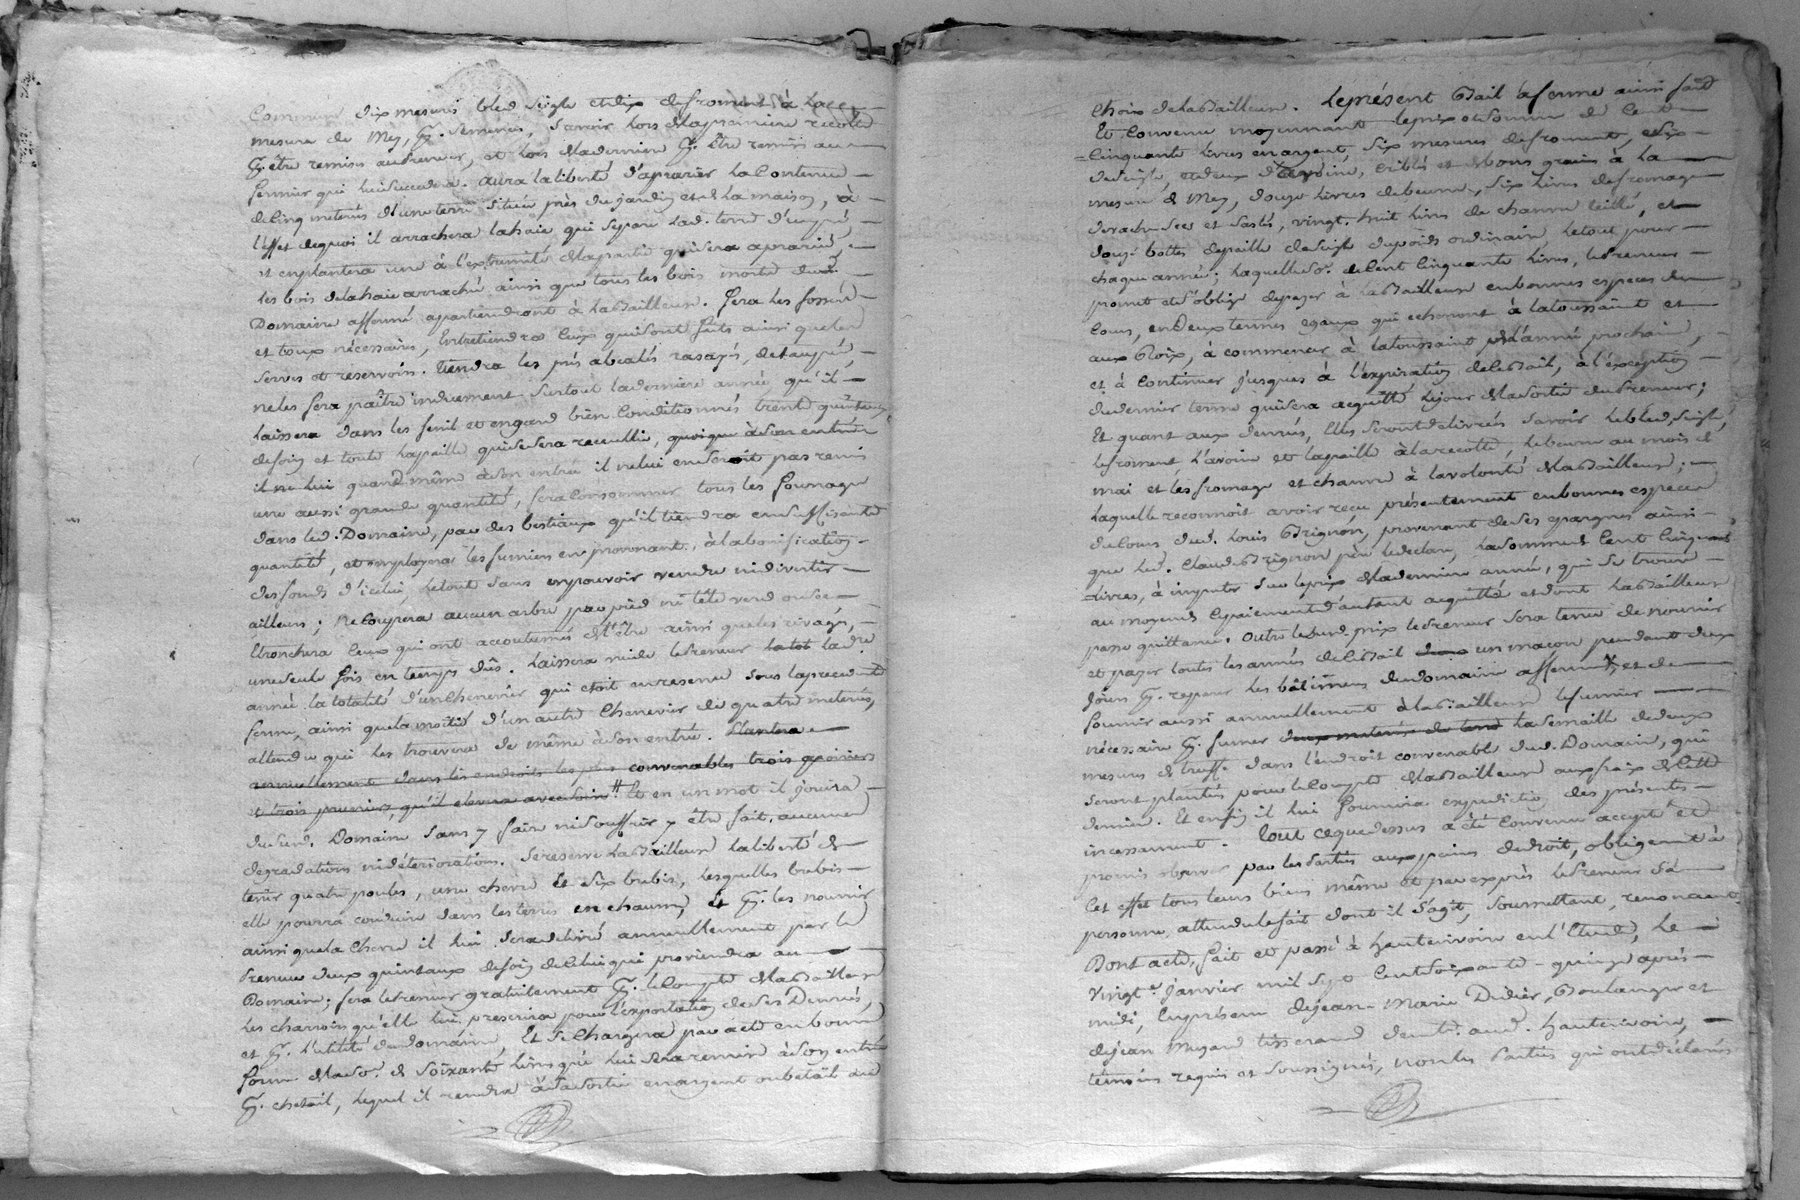 dix mesures bled seigle et dix de froment à lad.
mesure de Mey, pr. semences, savoir lors de la premiere recolte
pr. être remises au preneur, et lors de la derniere pr. être remises au
fermier qui lui succedera. aura la liberté d'aprarier la Contenue
de cinq meterés d'une terre située près du jardin et de la maison, à
l'effet de quoi il arrachera la haie qui separe lad. terre d'un pré,
et en plantera une à l'extremité de la partie qui sera aprariée,
les bois de la haie arrachée ainsi que tous les bois morts dud.
Domaine affermé appartiendront à la Bailleuse. fera les fossés
et toux nécessaires, Entretiendra Ceux qui sont faits ainsi que les
serves et reservoirs. tiendra les prés abealés rasagés, detaupés,
ne les fera paître induement. Surtout la derniere année qu'il
laissera dans les fenil et engard bien Conditionnés trente quintaux
de foin et toute la paille qui se sera recueillie, quoique à son entrée
il ne lui quand même à son entrée il ne lui en seroit pas remis
une aussi grande quantité, fera Consommer tous les fourrages
dans led. Domaine, par des bestiaux qu'il tiendra en suffisante
quantité, et employera les fumiers en provenant, à la bonification
des fonds d'icelui, le tout sans en pouvoir vendre ni divertir
ailleurs; ne Coupera aucun arbre par pied ni tête verd ou sec,
Etronchera Ceux qui ont accoutumés d'être ainsi que les rivages,
une seule fois en temps dûs. Laissera vuide le Preneur la tot lad. dre
année la totalité d'un Chenevier qui etoit en reserve sous la precedente
ferme, ainsi que la moitié d'un autre Chenevier de quatre meterés,
attendu qu'il les trouvera de même à son entrée. Plantera
annuellement dans les endroits les plus convenables trois poiriers
et trois pruniers qu'il elevera avec soin # Et en un mot il jouira
du sud. Domaine sans y faire ni souffrir y être fait, aucunes
degradations ni déteriorations. Se reserve la Bailleuse la liberté de
tenir quatre poules, une chevre et six brebis, lesquelles brebis
elle pourra conduire dans les terres en chaume, et pr. les nourrir
ainsi que la chevre il lui sera delivré annuellement par le
Preneur deux quintaux de foin de Celui qui proviendra au
Domaine; fera le Preneur gratuitement pr. le Compte de la Bailleuse
les charrois qu'elle lui prescrira pour l'exportation de ses Denrées,
et pr. l'utilité du domaine, Et se Chargera par acte en bonne
forme de la so. de soixante livres qui lui sera remise à son entrée
pr. cheteil, lequel il rendra à sa sortie en argent ou bétail au
choix de la Bailleuse. Le présent Bail à ferme ainsi fait
Et Convenu moyennant le prix et somme de Cent
Cinquante livres en argent, six mesures de froment, six
de seigle, et deux d'avoine, criblés et bons grains à la
mesure de Mey, douze livres de beurre, six livres de fromage
, vingt-huit livres de chanvre teillé, et
douze bottes de paille de seigle du poids ordinaire le tout pour
chaque année; Laquelle so. de Cent Cinquante livres, le Preneur
promet et s'oblige de payer à la Bailleuse en bonnes especes de
Cours, en Deux termes egaux qui echerront à la toussaint et
aux Rois, à commencer à la toussaint de l'année prochaine,
et à Continuer jusques à l'expiration de ce Bail, à l'exception
du dernier terme qui sera acquitté le jour de la sortie du Preneur;
Et quant aux denrées, Elles seront delivrées savoir le bled, seigle,
le froment, l'avoine et la paille à la recolte, le beurre au mois de
mai et les fromage et chanvre à la volonté de la Bailleuse;
Laquelle reconnoit avoir reçu présentement en bonnes especes
de Cours dud. Louis Brignon, provenant de ses epargnes ainsi
que led. Claude Brignon père le declare, la somme de Cent Cinquante
Livres, à imputer sur le prix de la derniere année, qui se trouve
au moyen de Ce paiement d'autant acquitté et dont la Bailleuse
passe quittance. Outre le surd. prix le Preneur sera tenu de nourrir
et payer toutes les années de Ce Bail deux un maçon pendant deux
jours pr. reparer les bâtimens du domaine affermé, et de
fournir aussi annuellement à la Bailleuse le fumier
nécessaire pr. fumer deux meterés de terre la semaille de deux
mesures de truff. dans l'endroit convenable dud. Domaine, qui
seront plantés pour le Compte de la Bailleuse aux frais de Cette
derniere. Et enfin il lui fournira expedition des présentes
incessament. Tout ce que dessus a été Convenu accepté et
promis observer par les Parties aux peines de droit, obligeant à
Cet effet tous leurs biens même et par exprès le Preneur sa
personne, attendu le fait dont il s'agit, soumettant, renonceant
Dont acte, fait et passé à hauterivoire en l'Etude, Le
vingt e. janvier mil sept Cent soixante-quinze après
midi, En presence de jean-Marie Didier, Boulanger et
de jean Muzard tisserand demt. aud. hauterivoire,
temoins requis et soussignés, non les Parties qui ont déclarés